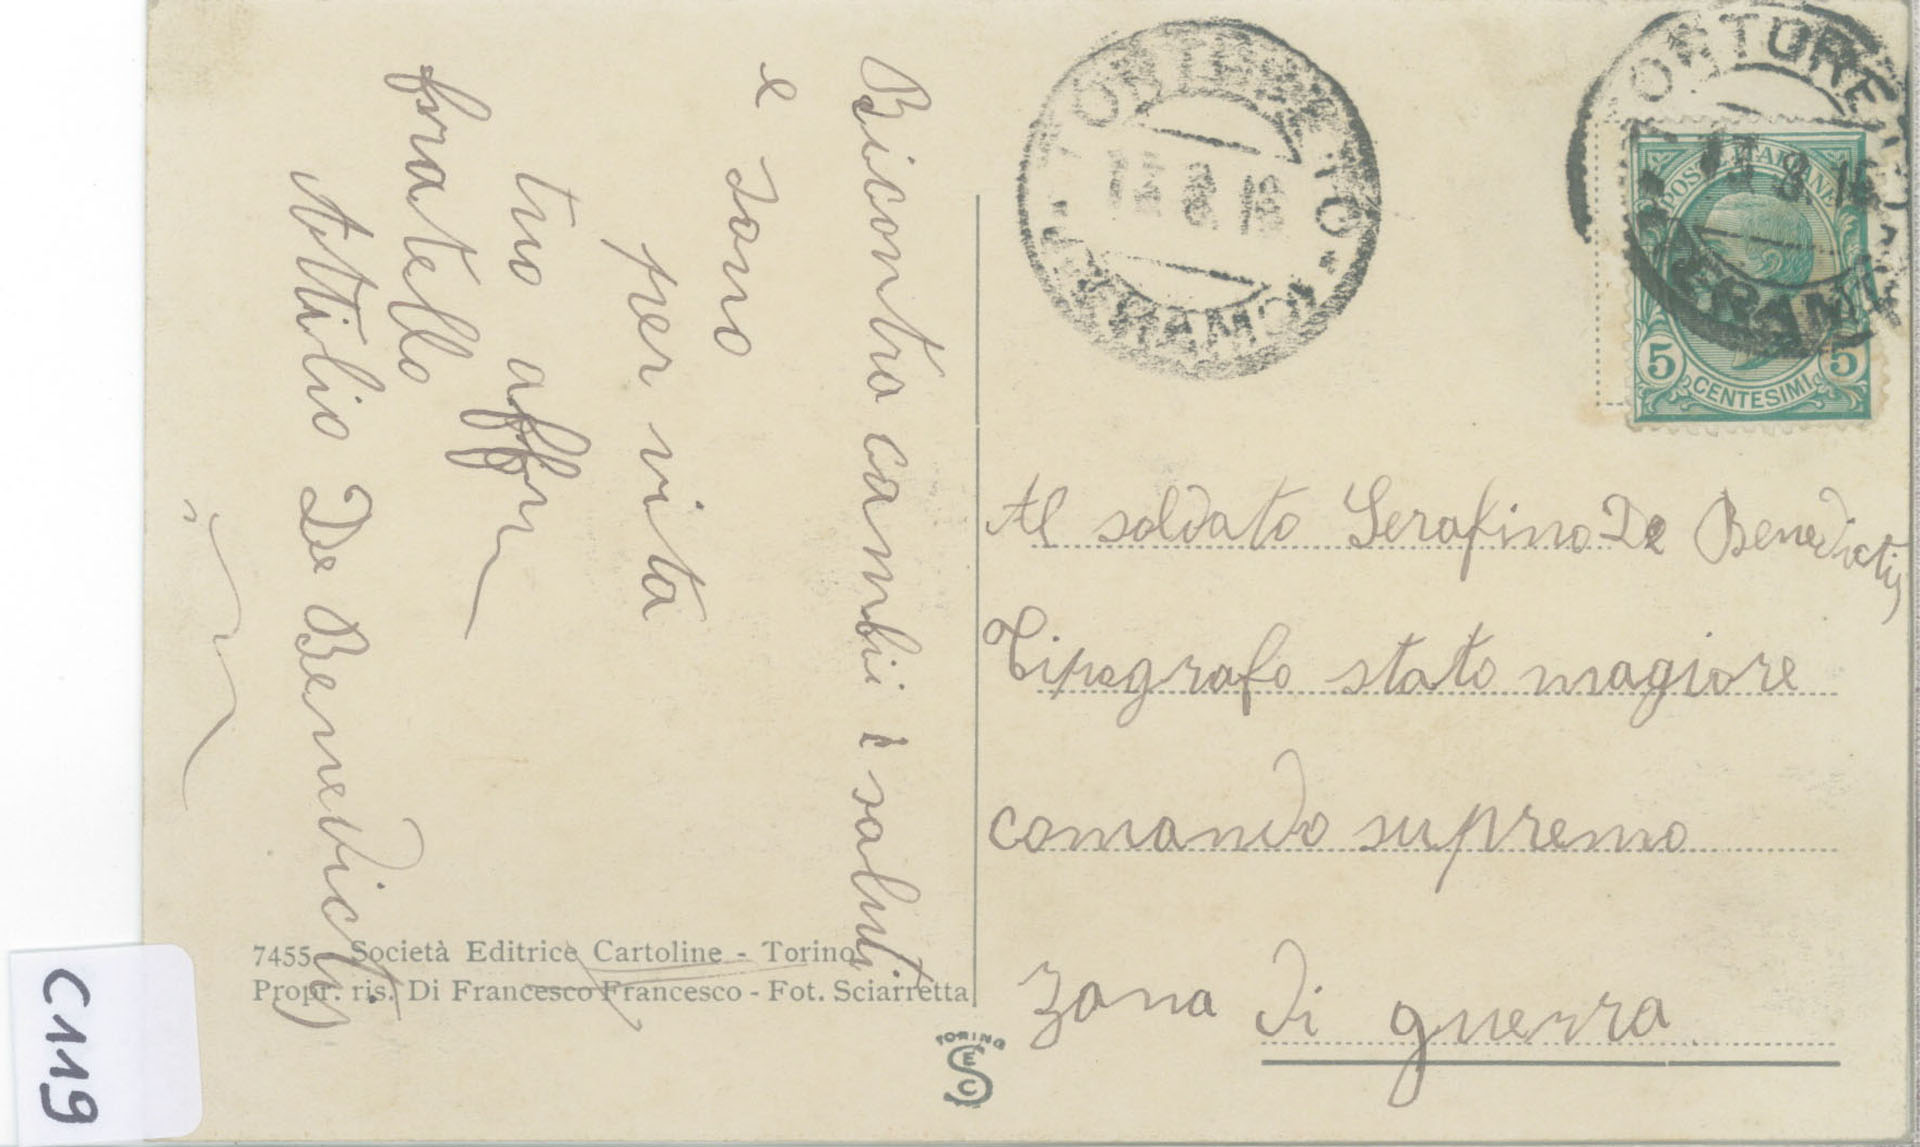 Bicontra cambii i saluti
e sono
per vita
tuo aff
fratello
Attilio De Benedictis
7455 Società Editrice Cartoline - Torino
Propr. ris. Di Francesco Francesco - Fot. Sciarretta
TORINO
S E C
13 8 16
TERAMO
POSTE ITALIANE
5 CENTESIMI 5
Al soldato Serafino De Benedictis
Tipografo stato magiore
comando supremo
zona di guerra
C119